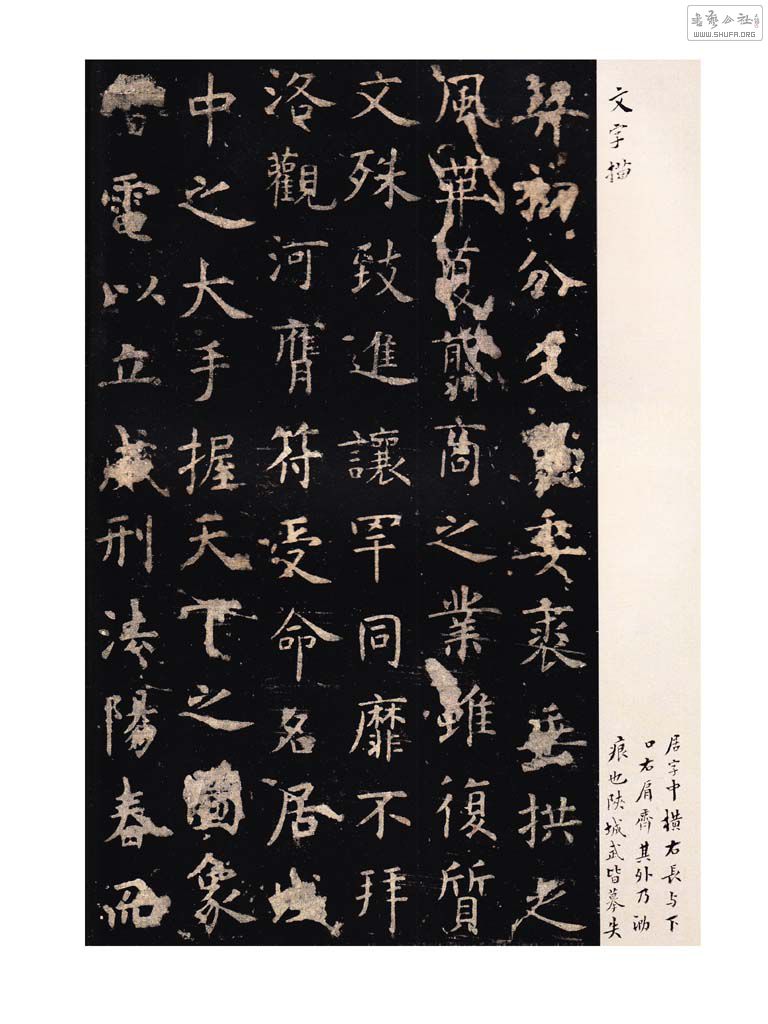 文字描
居字中橫右長与下
口右肩齊其外乃泐
痕也陝城武皆摹失
初分爻委裘垂拱之
風革夏翦商之業雖復質
文殊致進讓罕同靡不拜
洛觀河膺符受命名居域
中之大手握天下之圖象
雷電以立威刑法陽春而
書藝公社
WWW.SHUFA.ORG